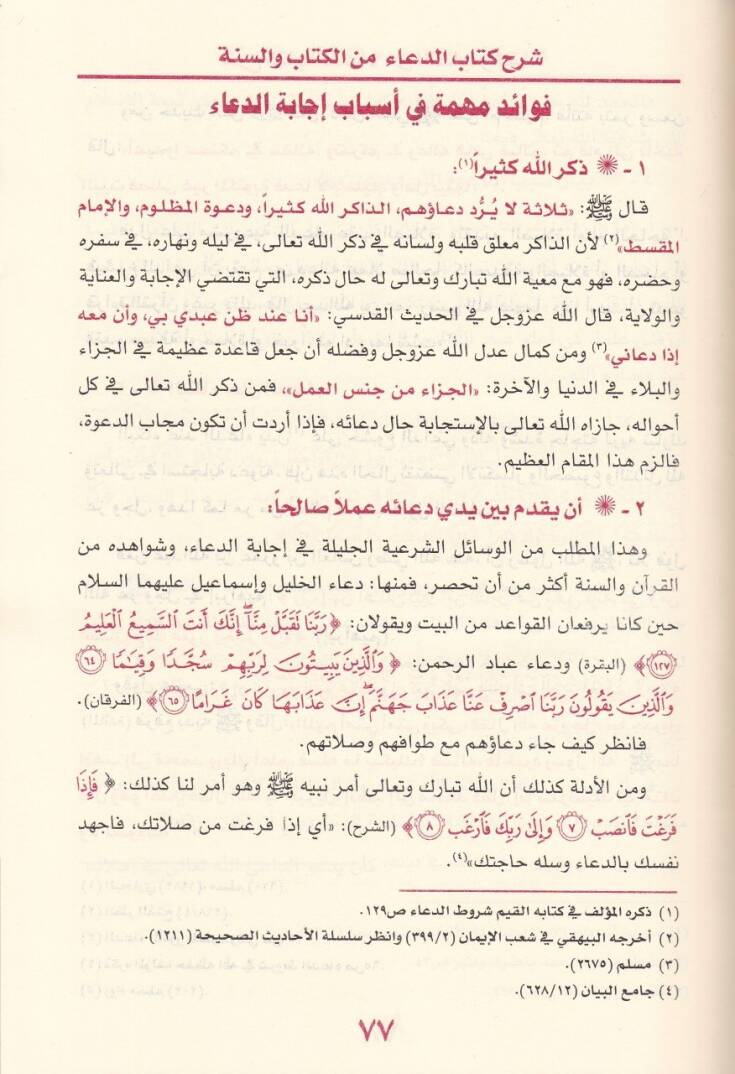 شرح كتاب الدعاء من الكتاب والسنة
فوائد مهمة في أسباب إجابة الدعاء
١ - ذكر الله كثيراً(١):
قال ﷺ: «ثلاثة لا يُرَّد دعاؤهم، الذاكر الله كثيراً، ودعوة المظلوم، والإمام
المقسط»(٢) لأن الذاكر معلق قلبه ولسانه في ذكر الله تعالى، في ليله ونهاره، في سفره
وحضره، فهو مع معية الله تبارك وتعالى له حال ذكره، التي تقتضي الإجابة والعناية
والولاية، قال الله عزوجل في الحديث القدسي: «أنا عند ظن عبدي بي، وأن معه
إذا دعاني»(٣) ومن كمال عدل الله عزوجل وفضله أن جعل قاعدة عظيمة في الجزاء
والبلاء في الدنيا والآخرة: «الجزاء من جنس العمل»، فمن ذكر الله تعالى في كل
أحواله، جازاه الله تعالى بالإستجابة حال دعائه، فإذا أردت أن تكون مجاب الدعوة،
فالزم هذا المقام العظيم.
٢ - أن يقدم بين يدي دعائه عملاً صالحاً:
وهذا المطلب من الوسائل الشرعية الجليلة في إجابة الدعاء، وشواهده من
القرآن والسنة أكثر من أن تحصر، فمنها: دعاء الخليل وإسماعيل عليهما السلام
حين كانا يرفعان القواعد من البيت ويقولان: ﴿رَبَّنَا تَقَبَّلْ مِنَّآ إِنَّكَ أَنتَ ٱلسَّمِيعُ ٱلْعَلِيمُ
١٢٧﴾ (البقرة) ودعاء عباد الرحمن: ﴿وَٱلَّذِينَ يَبِيتُونَ لِرَبِّهِمْ سُجَّدًا وَقِيَٰمًا ٦٤
وَٱلَّذِينَ يَقُولُونَ رَبَّنَا ٱصْرِفْ عَنَّا عَذَابَ جَهَنَّمَ إِنَّ عَذَابَهَا كَانَ غَرَامًا ٦٥﴾ (الفرقان).
فانظر كيف جاء دعاؤهم مع طوافهم وصلاتهم.
ومن الأدلة كذلك أن الله تبارك وتعالى أمر نبيه ﷺ وهو أمر لنا كذلك: ﴿فَإِذَا
فَرَغْتَ فَٱنصَبْ ٧ وَإِلَىٰ رَبِّكَ فَٱرْغَب ٨﴾ (الشرح): «أي إذا فرغت من صلاتك، فاجهد
نفسك بالدعاء وسله حاجتك»(٤).
(١) ذكره المؤلف في كتابه القيم شروط الدعاء ص١٢٩.
(٢) أخرجه البيهقي في شعب الإيمان (٣٩٩/٢) وانظر سلسلة الأحاديث الصحيحة (١٢١١).
(٣) مسلم (٢٦٧٥).
(٤) جامع البيان (٦٢٨/١٢).
٧٧